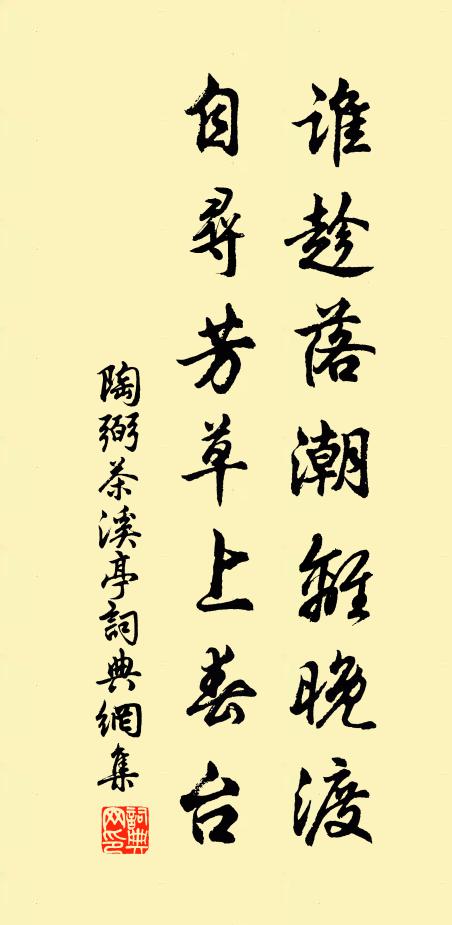 誰趁落潮離晚渡
自尋芳草上春台
陶弼茶溪亭詞典網集
詞典網印